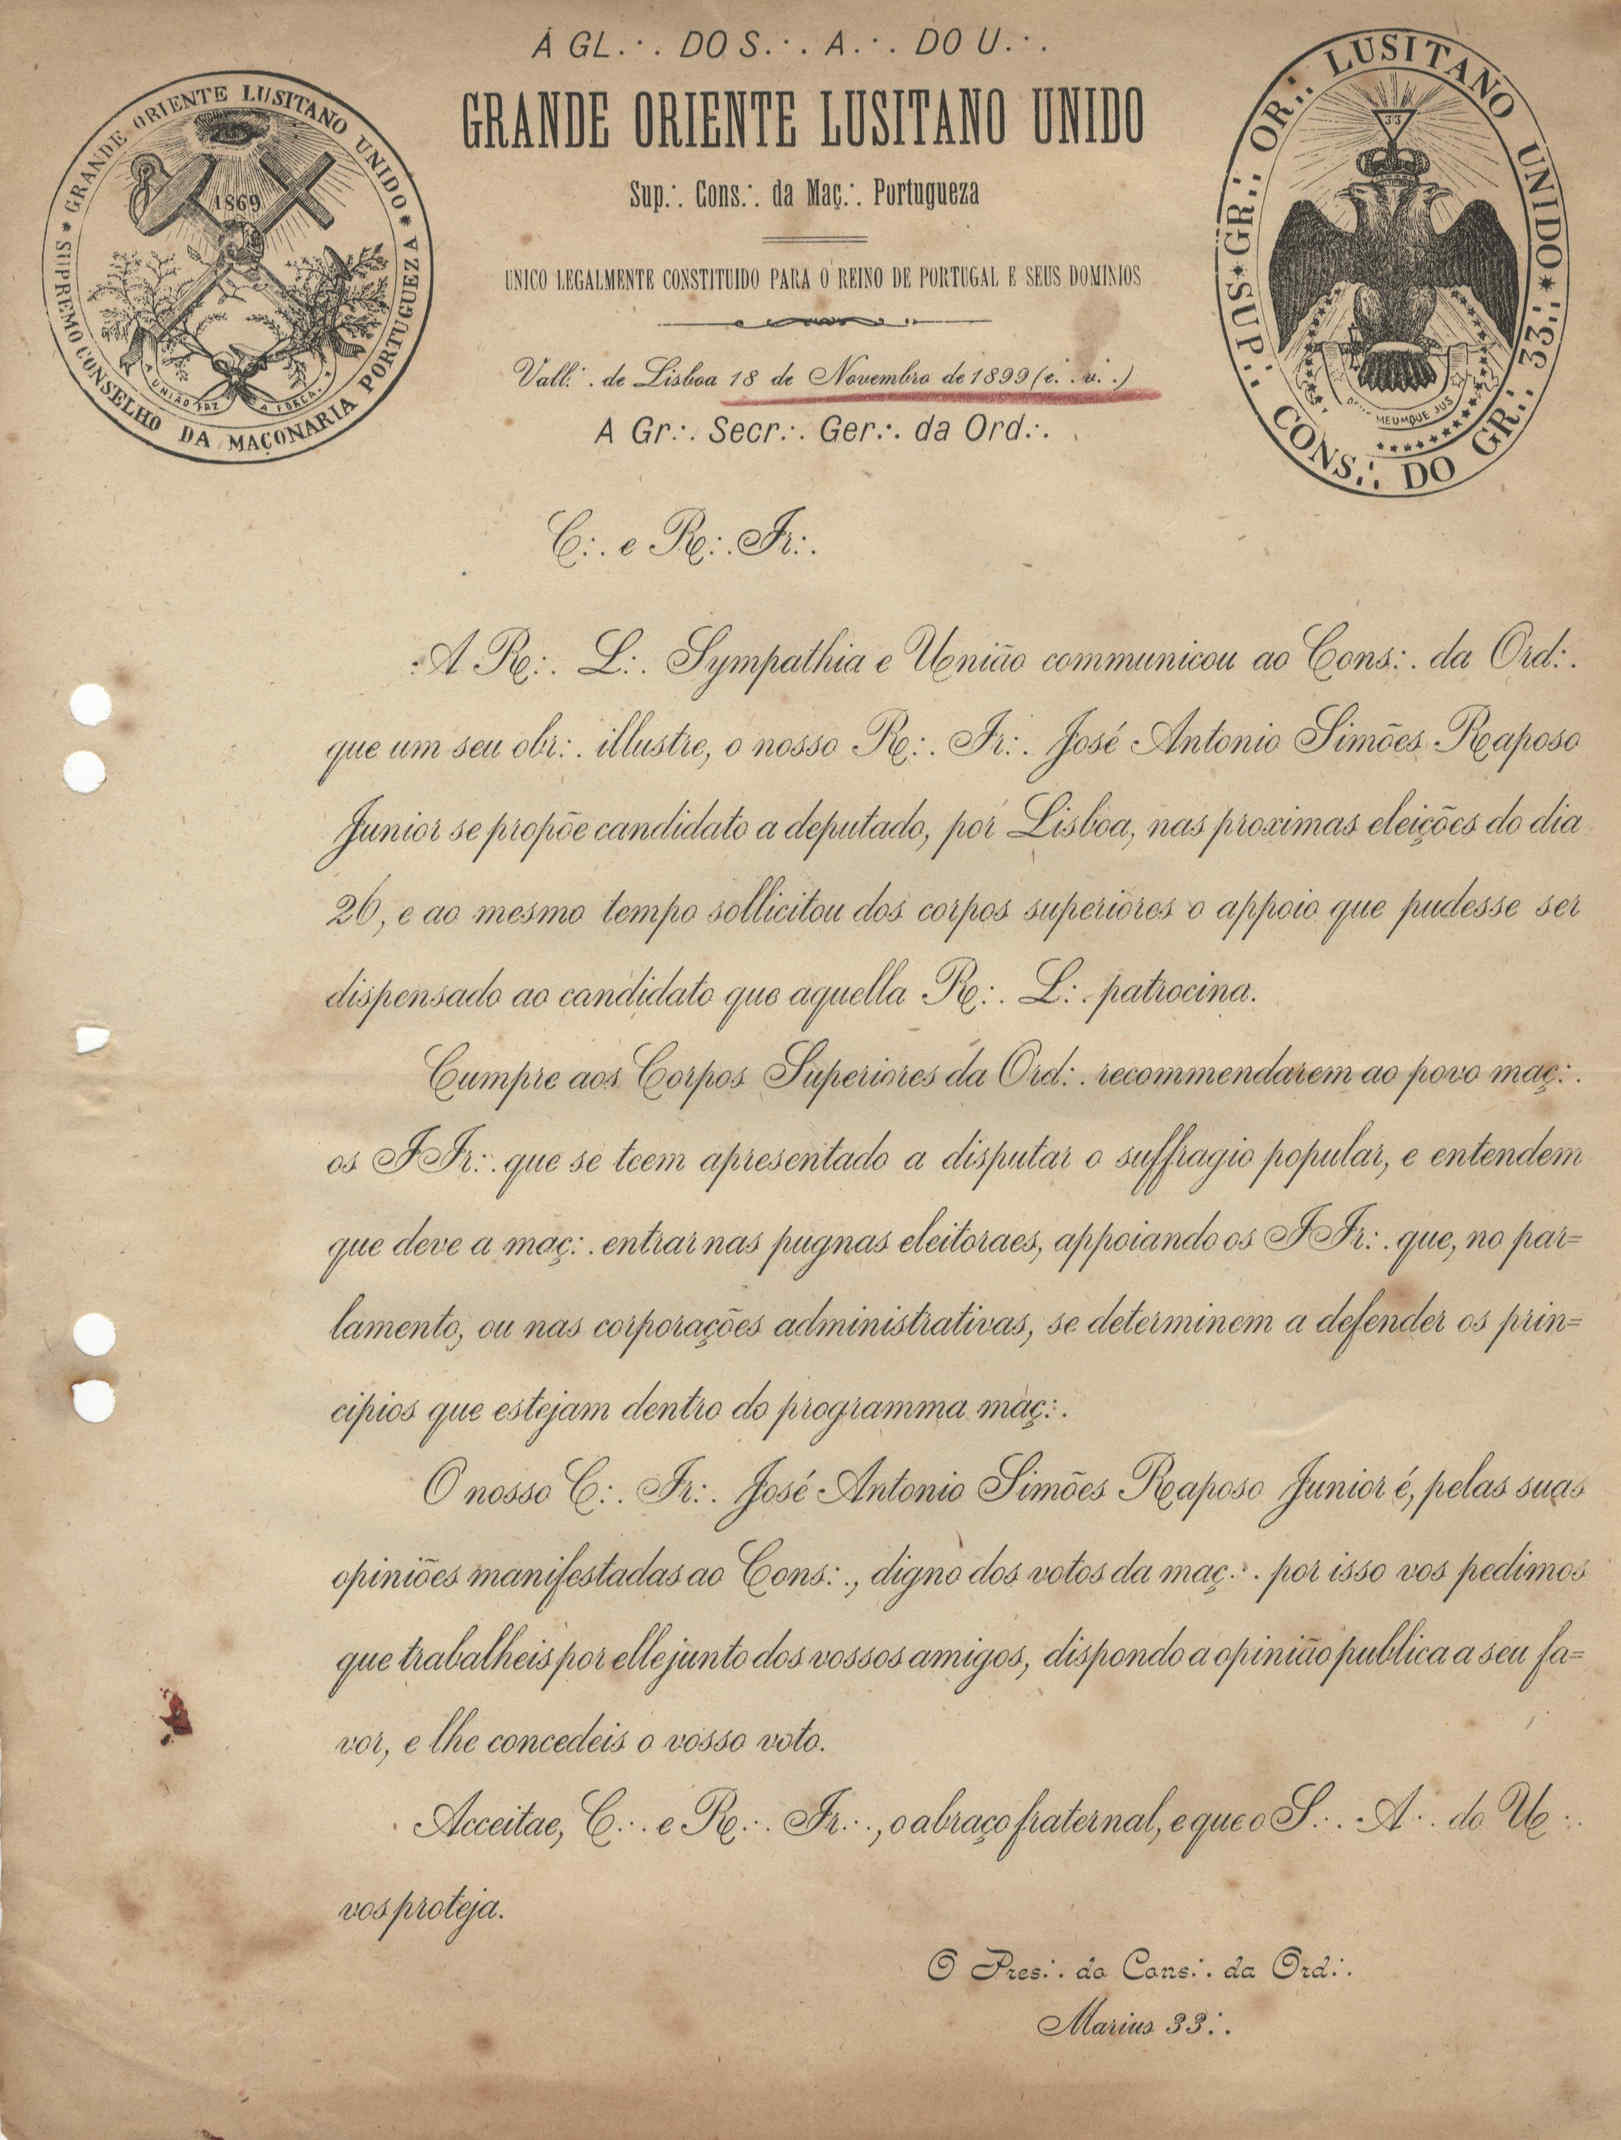 Á GL.·. DO S.·. A.·. DO U.·.
GRANDE ORIENTE LUSITANO UNIDO
Sup.·. Cons.·. da Maç.·. Portugueza
UNICO LEGALMENTE CONSTITUIDO PARA O REINO DE PORTUGAL E SEUS DOMINIOS
* GRANDE ORIENTE LUSITANO UNIDO *
SUPREMO CONSELHO DA MAÇONARIA PORTUGUEZA
1869
A UNIÃO FAZ A FORÇA
SUP.·. CONS.·. DO GR.·. 33.·.
* GR.·. OR.·. LUSITANO UNIDO *
33
MEUMQUE JUS
Vall.·. de Lisboa 18 de Novembro de 1899 (e.·. v.·.)
A Gr.·. Secr.·. Ger.·. da Ord.·.
C.·. e R.·. Ir.·.
A R.·. L.·. Sympathia e União communicou ao Cons.·. da Ord.·.
que um seu obr.·. illustre, o nosso R.·. Ir.·. José Antonio Simões Raposo
Junior se propõe candidato a deputado, por Lisboa, nas proximas eleições do dia
26, e ao mesmo tempo sollicitou dos corpos superiores o appoio que pudesse ser
dispensado ao candidato que aquella R.·. L.·. patrocina.
Cumpre aos Corpos Superiores da Ord.·. recommendarem ao povo maç.·.
os IIr.·. que se teem apresentado a disputar o suffragio popular, e entendem
que deve a maç.·. entrar nas pugnas eleitoraes, appoiando os IIr.·. que, no par=
lamento, ou nas corporações administrativas, se determinem a defender os prin=
cipios que estejam dentro do programma maç.·.
O nosso C.·. Ir.·. José Antonio Simões Raposo Junior é, pelas suas
opiniões manifestadas ao Cons.·., digno dos votos da maç.·. por isso vos pedimos
que trabalheis por elle junto dos vossos amigos, dispondo a opinião publica a seu fa=
vor, e lhe concedeis o vosso voto.
Acceitae, C.·. e R.·. Ir.·., o abraço fraternal, e que o S.·. A.·. do U.·.
vos proteja.
O Pres.·. do Cons.·. da Ord.·.
Marius 33.·.